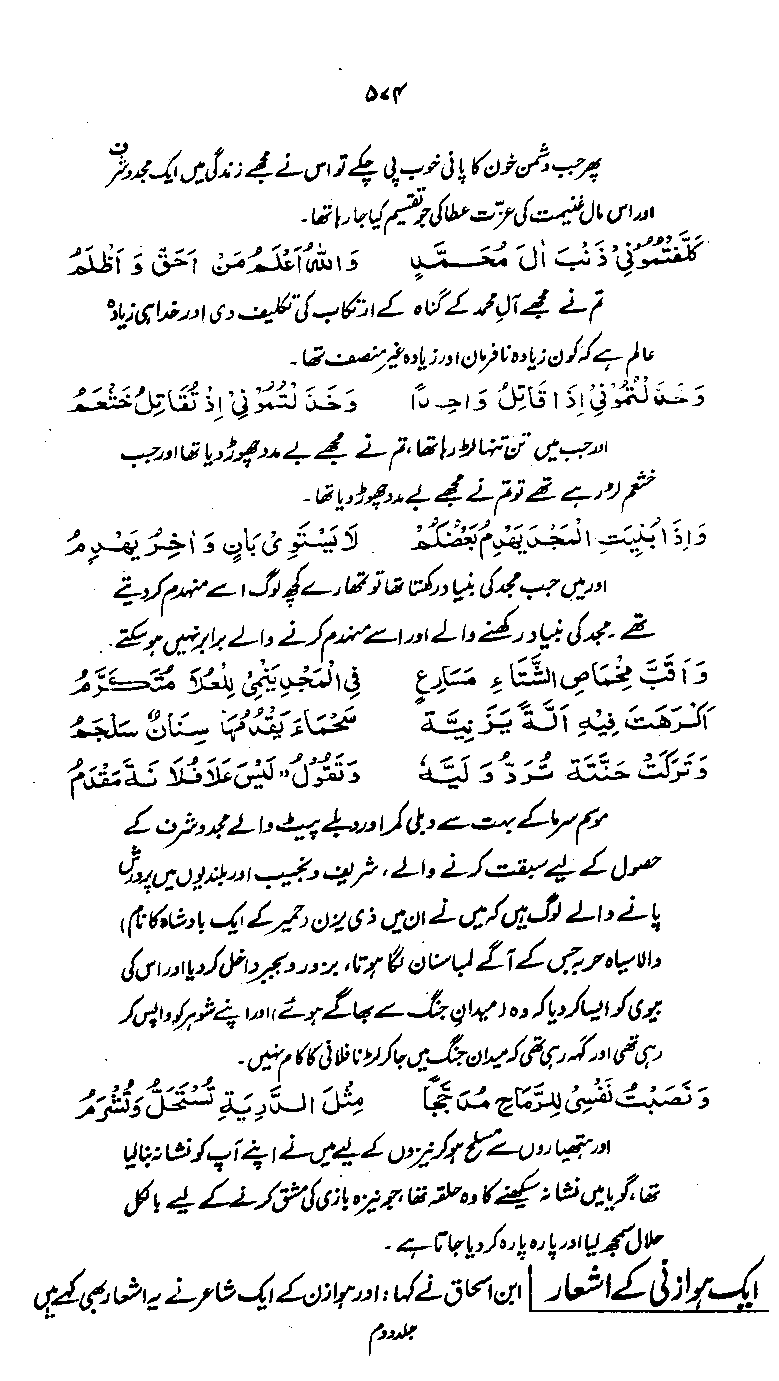 ۵۷۴
پھر جب دشمن خون کا پانی خوب پی چکے تو اس نے مجھے زندگی میں ایک مجد و شرف
اور اس مال غنیمت کی عزت عطا کی جو تقسیم کیا جا رہا تھا۔
كَلَّفْتُمُوْنِيْ ذَنْبَ اٰلَ مُحَمَّدٍ وَاللّٰهُ اَعْلَمُ مَنْ اَحَقَّ وَ اَظْلَمُ
تم نے مجھے آل محمد کے گناہ کے ارتکاب کی تکلیف دی اور خدا ہی زیادہ
عالم ہے کہ کون زیادہ نافرمان اور زیادہ غیر منصف تھا۔
وَخَذَلْتُمُوْنِيْ اِذَا قَاتِلُ وَاحِدًا وَخَذَلْتُمُوْنِيْ اِذْ تُقَاتِلُ خَثْعَمُ
اور جب میں تن تنہا لڑ رہا تھا، تم نے مجھے بے مدد چھوڑ دیا تھا اور جب
خثعم لڑ رہے تھے تو تم نے مجھے بے مدد چھوڑ دیا تھا۔
وَاِذَا بُنِيَتِ الْمَجْدَ يَهْدِمُ بَعْضُكُمْ لَا يَسْتَوِيْ بَانٍ وَاٰخِرُ يَهْدِمُ
اور میں جب مجد کی بنیاد رکھتا تھا تو تمھارے کچھ لوگ اسے منہدم کر دیتے
تھے۔ مجد کی بنیاد رکھنے والے اور اسے منہدم کرنے والے برابر نہیں ہو سکتے۔
وَاَقَبَّ مِخْمَاصِ الشِّتَاءِ مَسَارِعٍ فِي الْمَجْدِ يَنْمِيْ لِلْعُلَا مُتَكَرَّمُ
اَكْرَهْتَ فِيْهِ اَلَّةً يَزَنِيَّةً سَحْمَاءَ يَقْدُمُهَا سِنَانٌ سَلْجَمُ
وَتَرَكْتُ حَنَّتَهٗ تُرَدُّ وَلِيَّهٗ وَتَقُوْلُ" لَيْسَ عَلَا فُلَانَةَ مَقْدَمُ
موسم سرما کے بہت سے دبلی کمر اور دبلے پیٹ والے مجد و شرف کے
حصول کے لیے سبقت کرنے والے، شریف و نجیب اور بلندیوں میں پرورش
پانے والے لوگ ہیں کہ میں نے ان میں ذی یزن (حمیر کے ایک بادشاہ کا نام)
والا سیاہ حربہ جس کے آگے لمبا سنان لگا ہوتا، بزور و بجبر داخل کر دیا اور اس کی
بیوی کو ایسا کر دیا کہ وہ (میدان جنگ سے بھاگے ہوئے) اور اپنے شوہر کو واپس کر
رہی تھی اور کہہ رہی تھی کہ میدان جنگ میں جا کر لڑنا فلانی کا کام نہیں۔
وَنَصَبْتُ نَفْسِيْ لِلرِّمَاحِ مُدَجَّجًا مِثْلَ الدَّرِيَّةِ تُسْتَحَلُّ وَتُشْرَمُ
اور ہتھیاروں سے مسلح ہو کر نیزوں کے لیے میں نے اپنے آپ کو نشانہ بنا لیا
تھا، گویا میں نشانہ سیکھنے کا وہ حلقہ تھا، جو نیزہ بازی کی مشق کرنے کے لیے بالکل
حلال سمجھ لیا اور پارہ پارہ کر دیا جاتا ہے۔
ایک ہوازنی کے اشعار ابن اسحاق نے کہا: اور ہوازن کے ایک شاعر نے یہ اشعار بھی کہے ہیں
جلد دوم